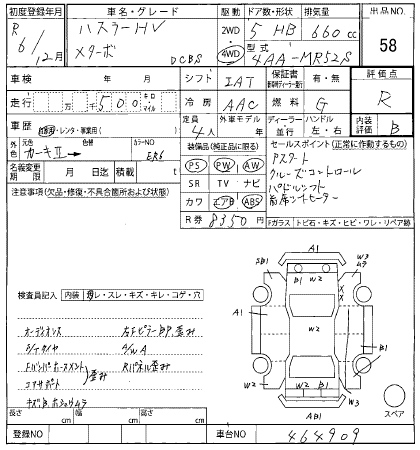 初度登録年月 車名・グレード 駆動 ドア数・形状 排気量 出品NO.
R 6/12月 ハスラーHV 2WD 5 HB 660cc 58
Xターボ DCBS 4WD 型式 4AA-MR52S
車検 年 月 シフト IAT 保証書 有・無 評価点
走行 万 千 500 キロ マイル 冷房 AAC 燃料 G R
車歴 自家用・レンタ・事業用( ) 定員 4人 外車モデル 年 ディーラー 並行 ハンドル 左・右 内装評価 B
外色 元色 カーキⅡ → 色替 カラーNO ER6 装備品(純正品に限る) セールスポイント(正常に作動するもの)
名義変更期限 月 日迄 積載 t PS PW AW アスタート
注意事項(欠品・修復・不具合箇所および状態) SR TV ナビ クルーズコントロール
カワ エアB ABS パドルシフト
R券 8350円 前席シートヒーター
Fガラス トビ石・キズ・ヒビ・ワレ・リペア跡
検査員記入 内装 汚レ・スレ・キズ・キレ・コゲ・穴
オーディオレス 右Fピラー 歪み
S/Tタイヤ A/W A
Fバンパホースメント 歪み Rパネル歪み
コアサポート
A1
5B1 B1 W2 W3 ムラ
X
X
A1 W2 B1
W2 W2 B1 W2
AB1 W3
スペア
長さ cm 幅 cm 高さ cm
登録NO 車台NO 464909